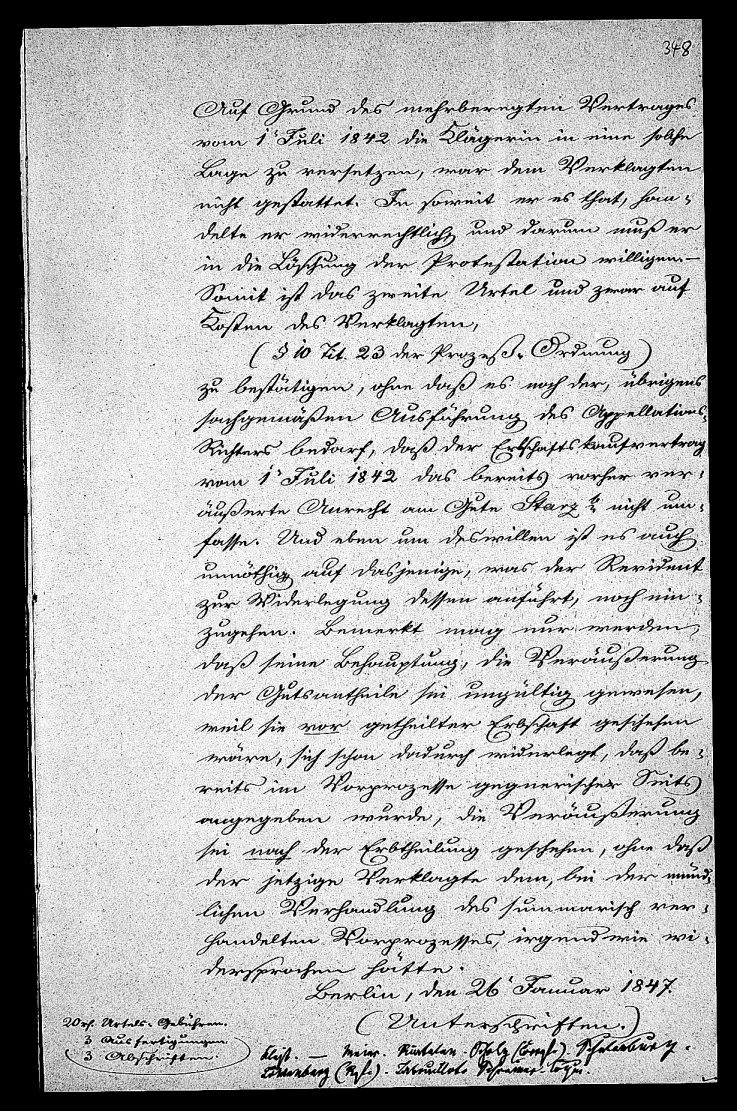 348
Auf Grund des mehrberegten Vertrages
vom 1' Juli 1842 die Klägerin in eine solche
Lage zu versetzen, war dem Verklagten
nicht gestattet. In soweit er es that, han-
delte er widerrechtlich und darum muß er
in die Löschung der Protestation willigen.-
Somit ist das zweite Urtel und zwar auf
Kosten des Verklagten,
(§ 10 Tit. 23 der Prozeß-Ordnung)
zu bestätigen, ohne daß es noch der, übrigens
sachgemäßen Ausführung des Appellations-
Richters bedarf, daß der Erbschaftskaufvertrag
vom 1' Juli 1842 das bereits vorher ver-
äußerte Anrecht am Gute Starz nicht um-
fasse. Und eben um deswillen ist es auch
unnöthig auf dasjenige, was der Revident
zur Widerlegung dessen anführt, noch ein-
zugehen. Bemerkt mag nur werden,
daß seine Behauptung, die Veräußerung
der Gutsantheile sei ungültig gewesen,
weil sie vor getheilter Erbschaft geschehen
wäre, sich schon dadurch widerlegt, daß be-
reits im Vorprozesse gegnerischer Seits
angegeben wurde, die Veräußerung
sei nach der Erbtheilung geschehen, ohne daß
der jetzige Verklagte dem, bei der münd-
lichen Verhandlung des summarisch ver-
handelten Vorprozesses, irgendwie wi-
dersprochen hätte.
Berlin, den 26' Januar 1847.
(Unterschriften.)
20 Urtels-Gebühren.
3 Ausfertigungen
3 Abschriften.
Kleist. — Meier. Scholz